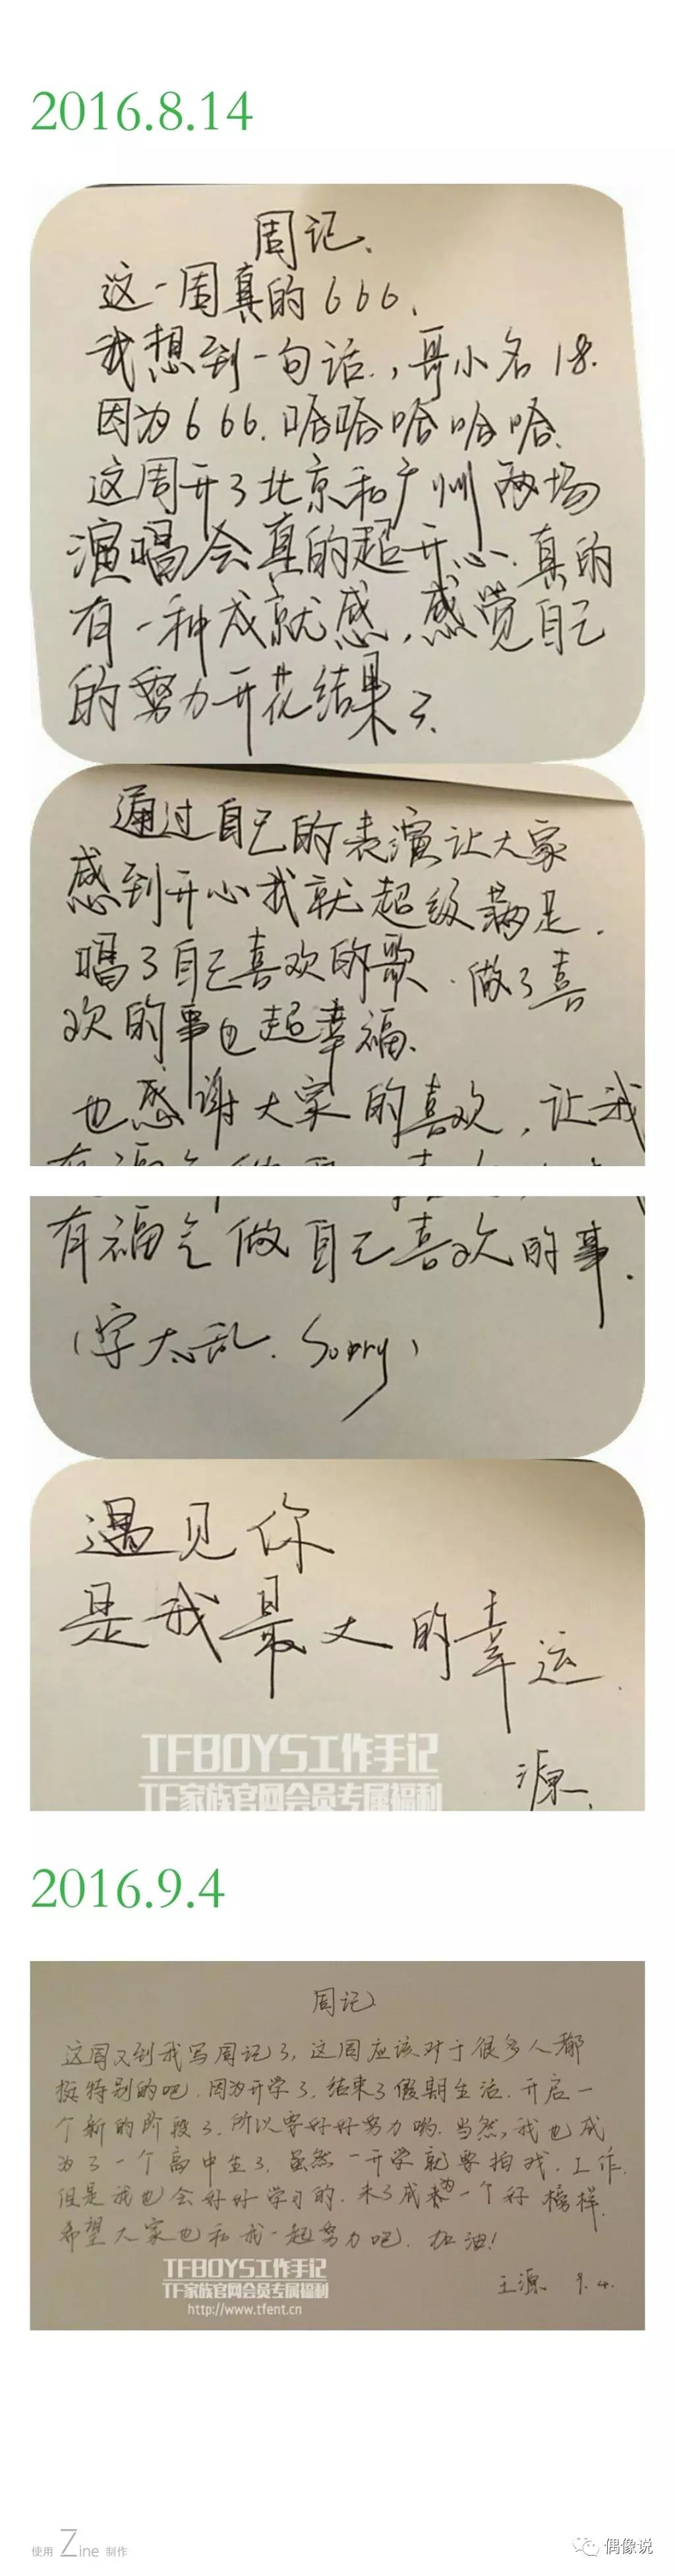 2016.8.14
周记、
这一周真的666、
我想到一句话.,哥小名18.
因为666.哈哈哈哈哈.
这周开了北京和广州两场
演唱会真的超开心.真的
有一种成就感,感觉自己
的努力开花结果了.
通过自己的表演让大家
感到开心我就超级满足.
唱了自己喜欢的歌.做了喜
欢的事也超幸福.
也感谢大家的喜欢,让我
有福气做自己喜欢的事.
(字太乱.Sorry)
遇见你
是我最大的幸运.
源.
TFBOYS工作手记
TF家族官网会员专属福利
2016.9.4
周记
这周又到我写周记了,这周应该对于很多人都
挺特别的吧.因为开学了.结束了假期生活.开启一
个新的阶段了.所以要好好努力哟.当然,我也成
为了一个高中生了.虽然一开学就要拍戏.工作.
但是我也会好好学习的.为了成为一个好榜样.
希望大家也和我一起努力吧.加油!
王源 9.4.
TFBOYS工作手记
TF家族官网会员专属福利
http://www.tfent.cn
使用 Zine 制作
偶像说